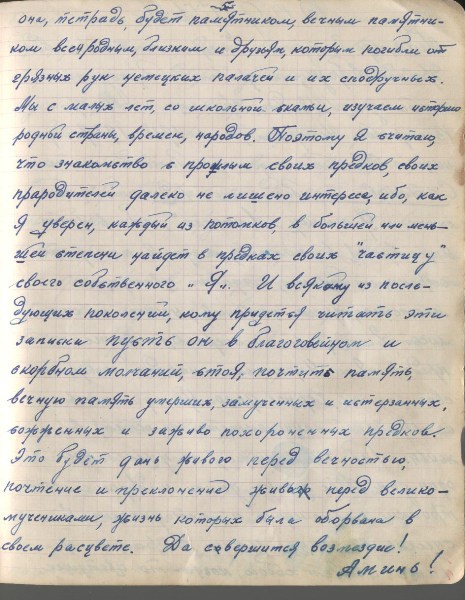 5
она, тетрадь, будет памятником, вечным памятни-
ком всем родным, близким и друзьям, которые погибли от
грязных рук немецких палачей и их сподручных.
Мы с малых лет, со школьной скамьи, изучаем историю
родной страны, времен, народов. Поэтому я считаю,
что знакомство с прошлым своих предков, своих
прародителей далеко не лишено интереса, ибо, как
я уверен, каждый из потомков, в большей или мень-
шей степени найдет в предках своих "частицу"
своего собственного „Я". И всякому из после-
дующих поколений, кому придется читать эти
записки пусть он в благоговейном и
скорбном молчании, стоя, почтить память,
вечную память умерших, замученных и истерзанных,
сожженных и заживо похороненных предков.
Это будет дань живого перед вечностью,
почтение и преклонение живых перед велико-
мучениками, жизнь которых была оборвана в
своем расцвете. Да свершится возмездие!
Аминь!